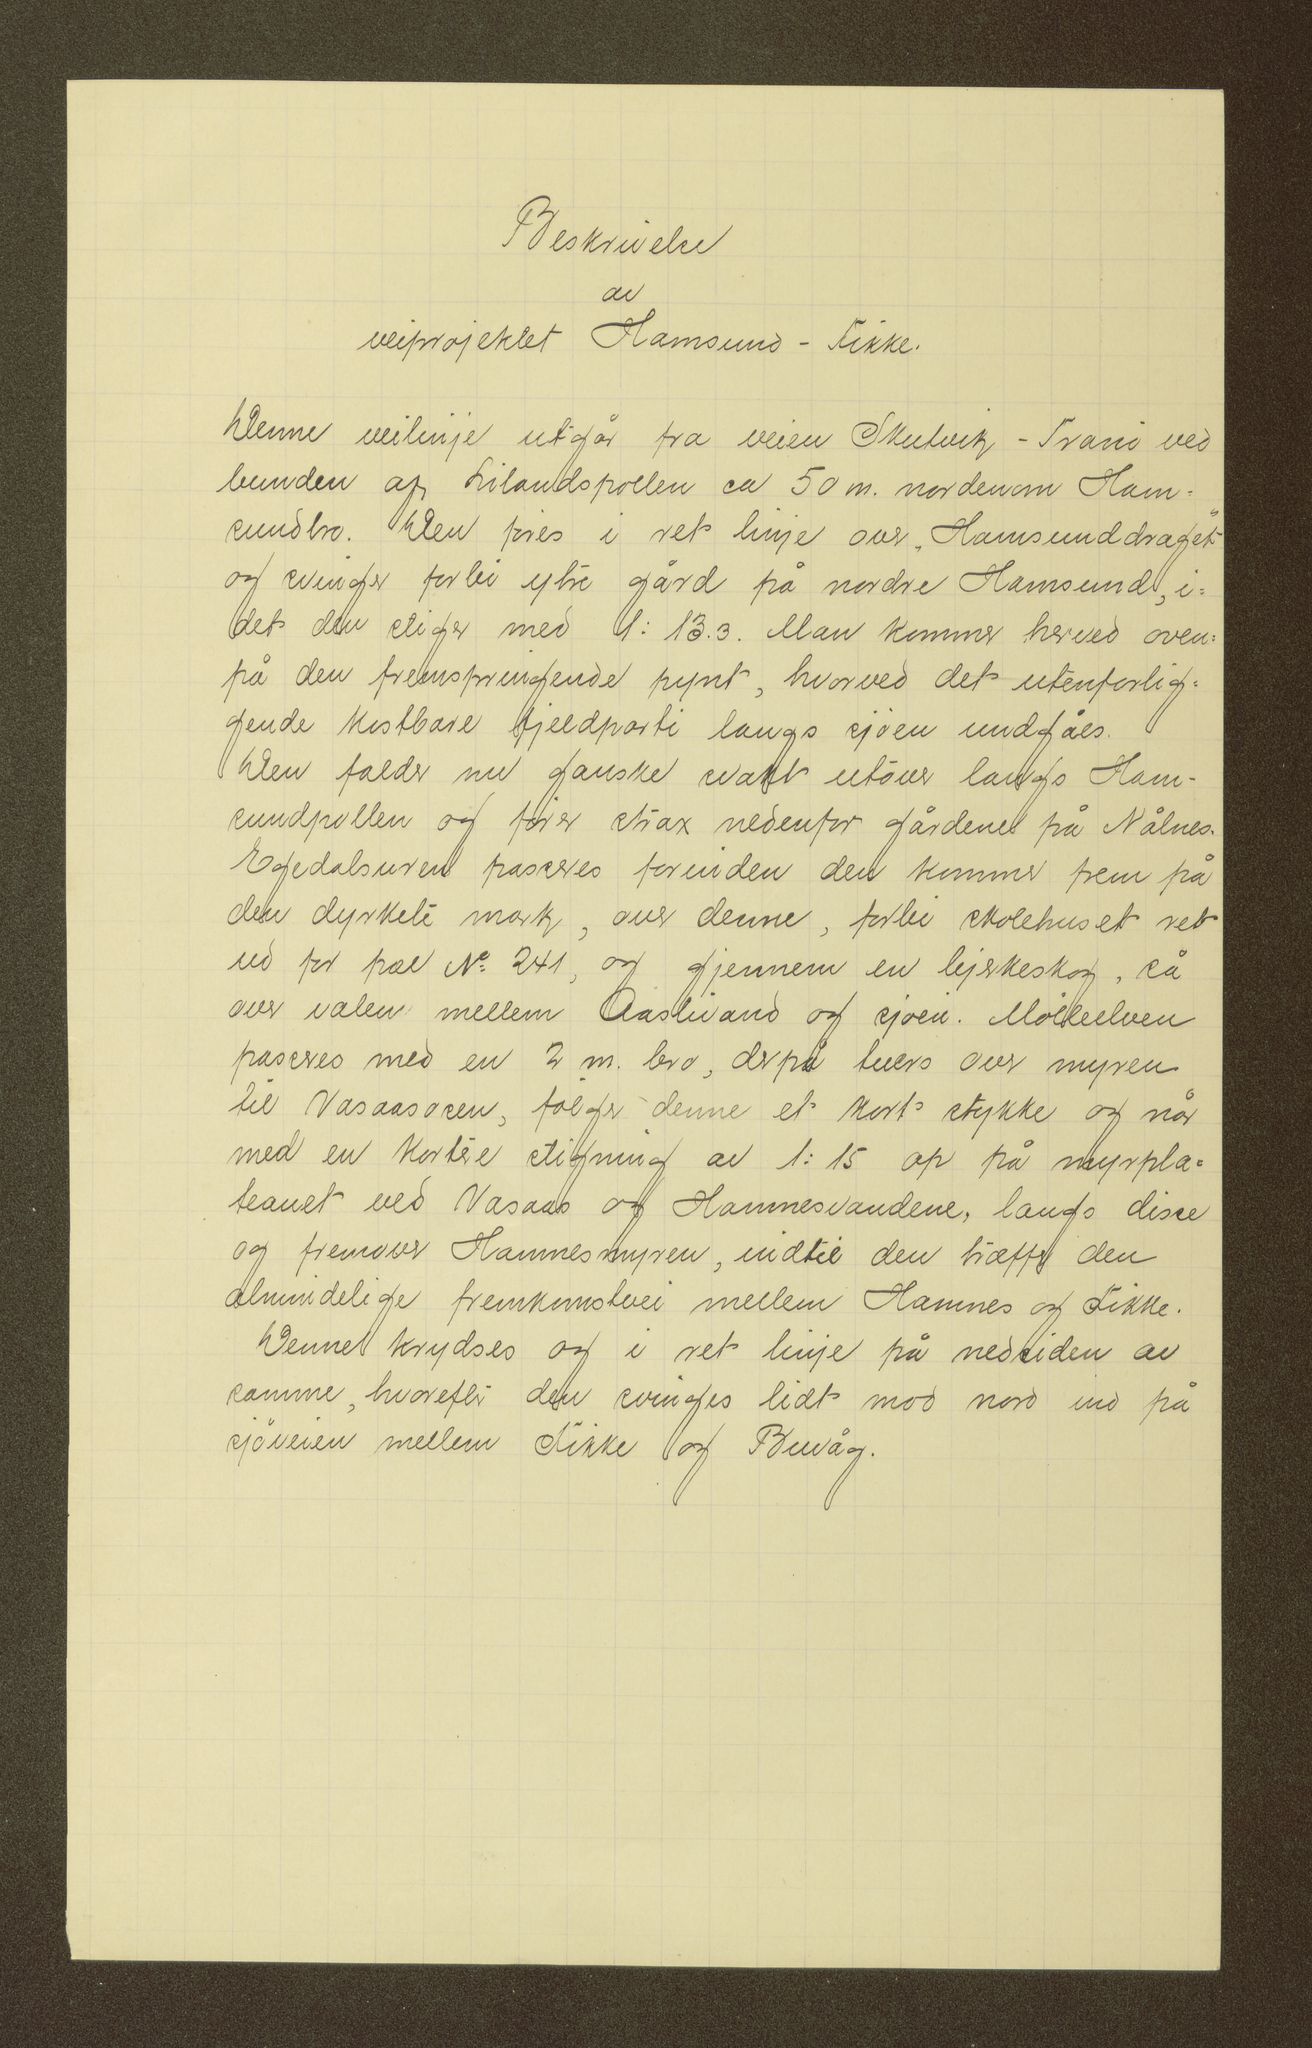 Beskrivelse
av
veiprojektet Hamsund - Fikke.
Denne veilinje utgår fra veien Skutvik - Tranö ved
bunden af Lilandspollen ca 50 m. nordenom Ham=
sundbro. Den föres i ret linje over „Hamsunddraget"
og svinger forbi ytre gård på nordre Hamsund, i=
det den stiger med 1: 13.3. Man kommer herved oven=
på den fremspringende pynt, hvorved det utenforlig=
gende kostbare fjeldparti langs sjöen undgåes.
Den falder nu ganske svakt utöver langs Ham-
sundpollen og förer strax nedenfor gårdene på Nålnes.
Egedalsuren passeres forinden den kommer frem på
den dyrkete mark, over denne, forbi skolehuset ret
ud for pæl No. 241, og gjennem en bjerkeskog, så
over valen mellem Aaslivand og sjöen. Mölleelven
passeres med en 2 m. bro, derpå tvers over myren
til Vasaasosen, fölger denne et kort stykke og når
med en kortere stigning av 1: 15 op på myrpla=
teauet ved Vasaas og Hamnesvandene, langs disse
og fremover Hamnesmyren, indtil den træffer den
almindelige fremkomstvei mellem Hamnes og Fikke.
Denne krydses og i ret linje på nedsiden av
samme, hvorefter den svinges lidt mod nord ind på
sjöveien mellem Fikke og Buvåg.